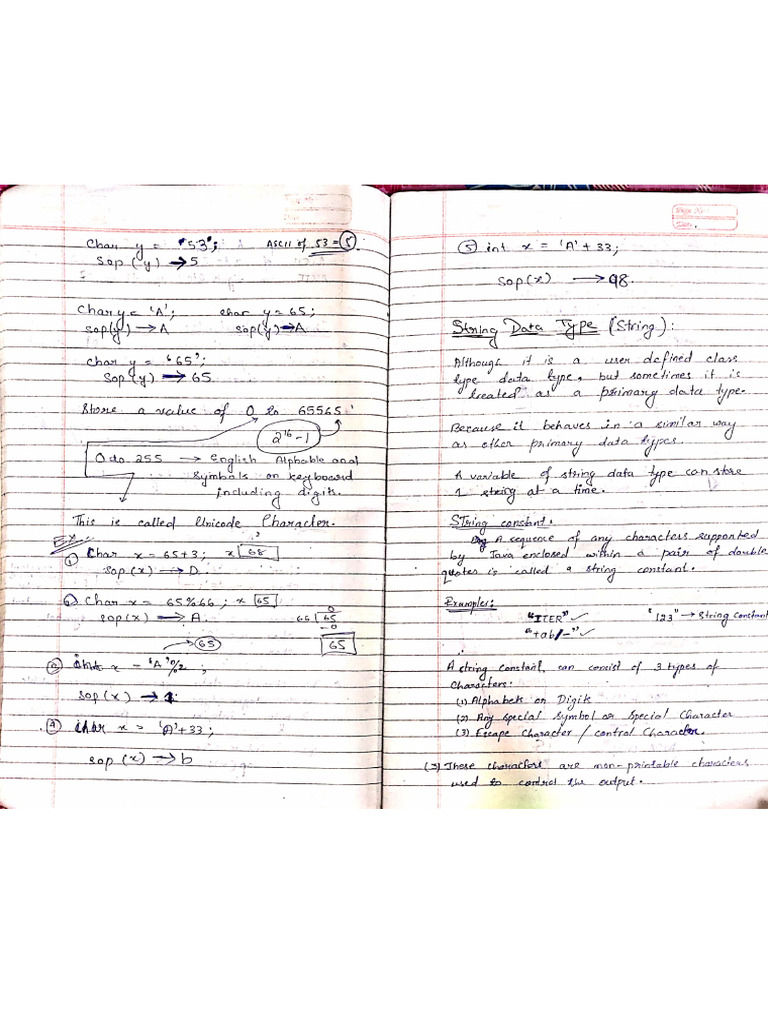 Char y = '53'; ASCII of 53 = 5
Sop (y) → 5
Char y = 'A'; char y = 65;
Sop(y) → A Sop(y) → A
Char y = '65';
Sop (y) → 65
Store a value of 0 to 65565
2^16 - 1
0 to 255 → English Alphable and
Symbols on keyboard
including digits.
This is called Unicode Character.
Ex.
(1) Char x = 65+3; x 68
Sop (x) → D.
(2) Char x = 65%66; x 65
Sop(x) → A.
66 65 0
-0
65
65
(3) int x = 'A'%2 ;
Sop (x) → 1
(4) char x = 'A'+33;
Sop (x) → b
(5) int x = 'A' + 33;
Sop(x) → 98.
String Data Type (String):
Although it is a user defined class
type data type, but sometimes it is
treated as a primary data type.
Because it behaves in a similar way
as other primary data types.
A variable of string data type can store
1 string at a time.
String constant.
A sequence of any characters supported
by Java enclosed within a pair of double
quotes is called a string constant.
Examples:
"ITER" ✓ "123" → String Constant
"tab/-" ✓
A string constant, can consist of 3 types of
Characters:
(1) Alphabets or Digits
(2) Any special symbol or special Character
(3) Escape Character / control Character.
(3) These characters are non-printable characters
used to control the output.